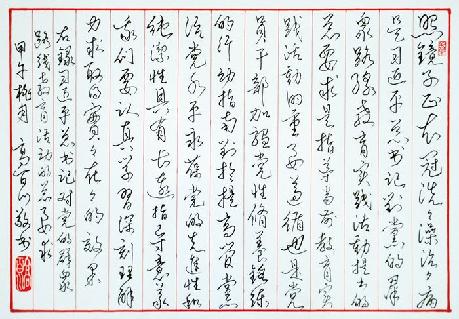 照镜子正衣冠洗洗澡治治病
是习近平总书记對黨的羣
众路线教育实践活动提出的
总要求是指导当前教育实
践活动的重要遵循也是党
员干部加强党性修养锤炼
的行动指南對提高管黨
治党水平永葆党的先进性和
纯洁性具有长远指导意义
我们要认真学习深刻理解
力求取的實實在在的效果
右録习近平总书记对党的群众
路线教育活动的总要求
甲午桃月 高百川敬书